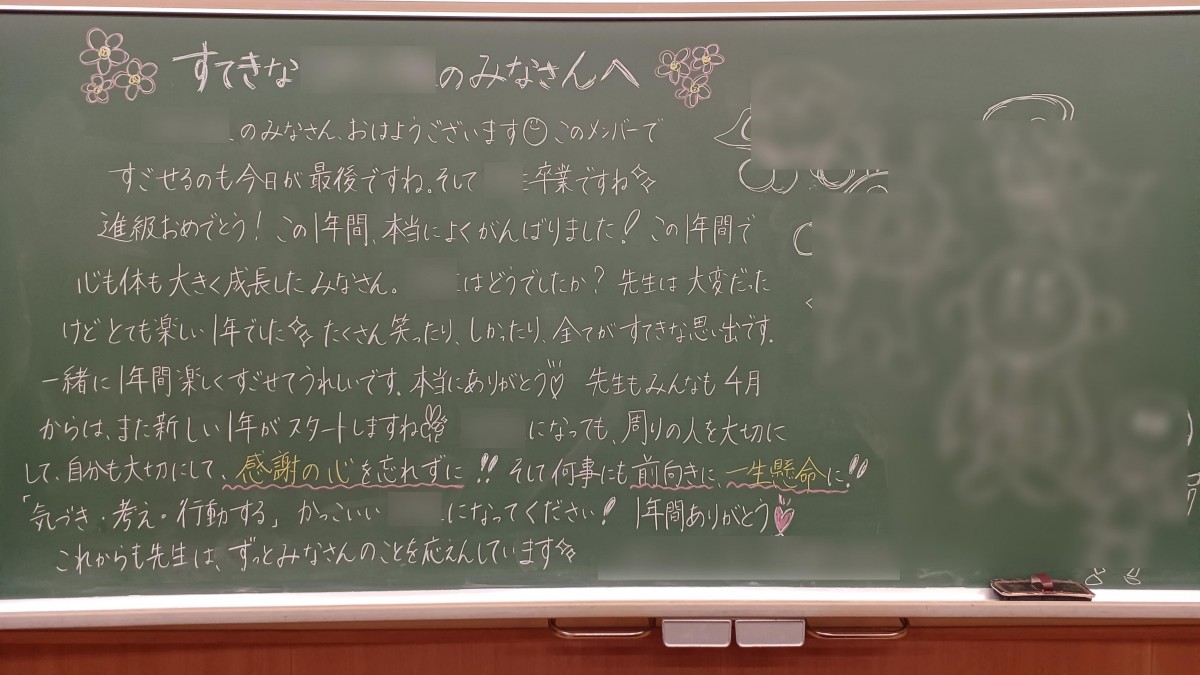 すてきな のみなさんへ
のみなさん、おはようございます このメンバーで
すごせるのも今日が最後ですね。そして 卒業ですね
進級おめでとう！この1年間、本当によくがんばりました！この1年間で
心も体も大きく成長したみなさん。 はどうでしたか？先生は大変だった
けどとても楽しい1年でした たくさん笑ったり、しかったり、全てがすてきな思い出です。
一緒に1年間楽しくすごせてうれしいです。本当にありがとう 先生もみんなも4月
からは、また新しい1年がスタートしますね になっても、周りの人を大切に
して、自分も大切にして、感謝の心を忘れずに!! そして何事にも前向きに、一生懸命に!!
「気づき・考え・行動する」かっこいい になってください！1年間ありがとう
これからも先生は、ずっとみなさんのことを応えんしています